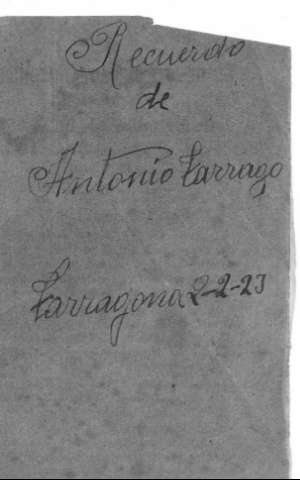 Recuerdo
de
Antonio Tarrago
Tarragona 2-2-23